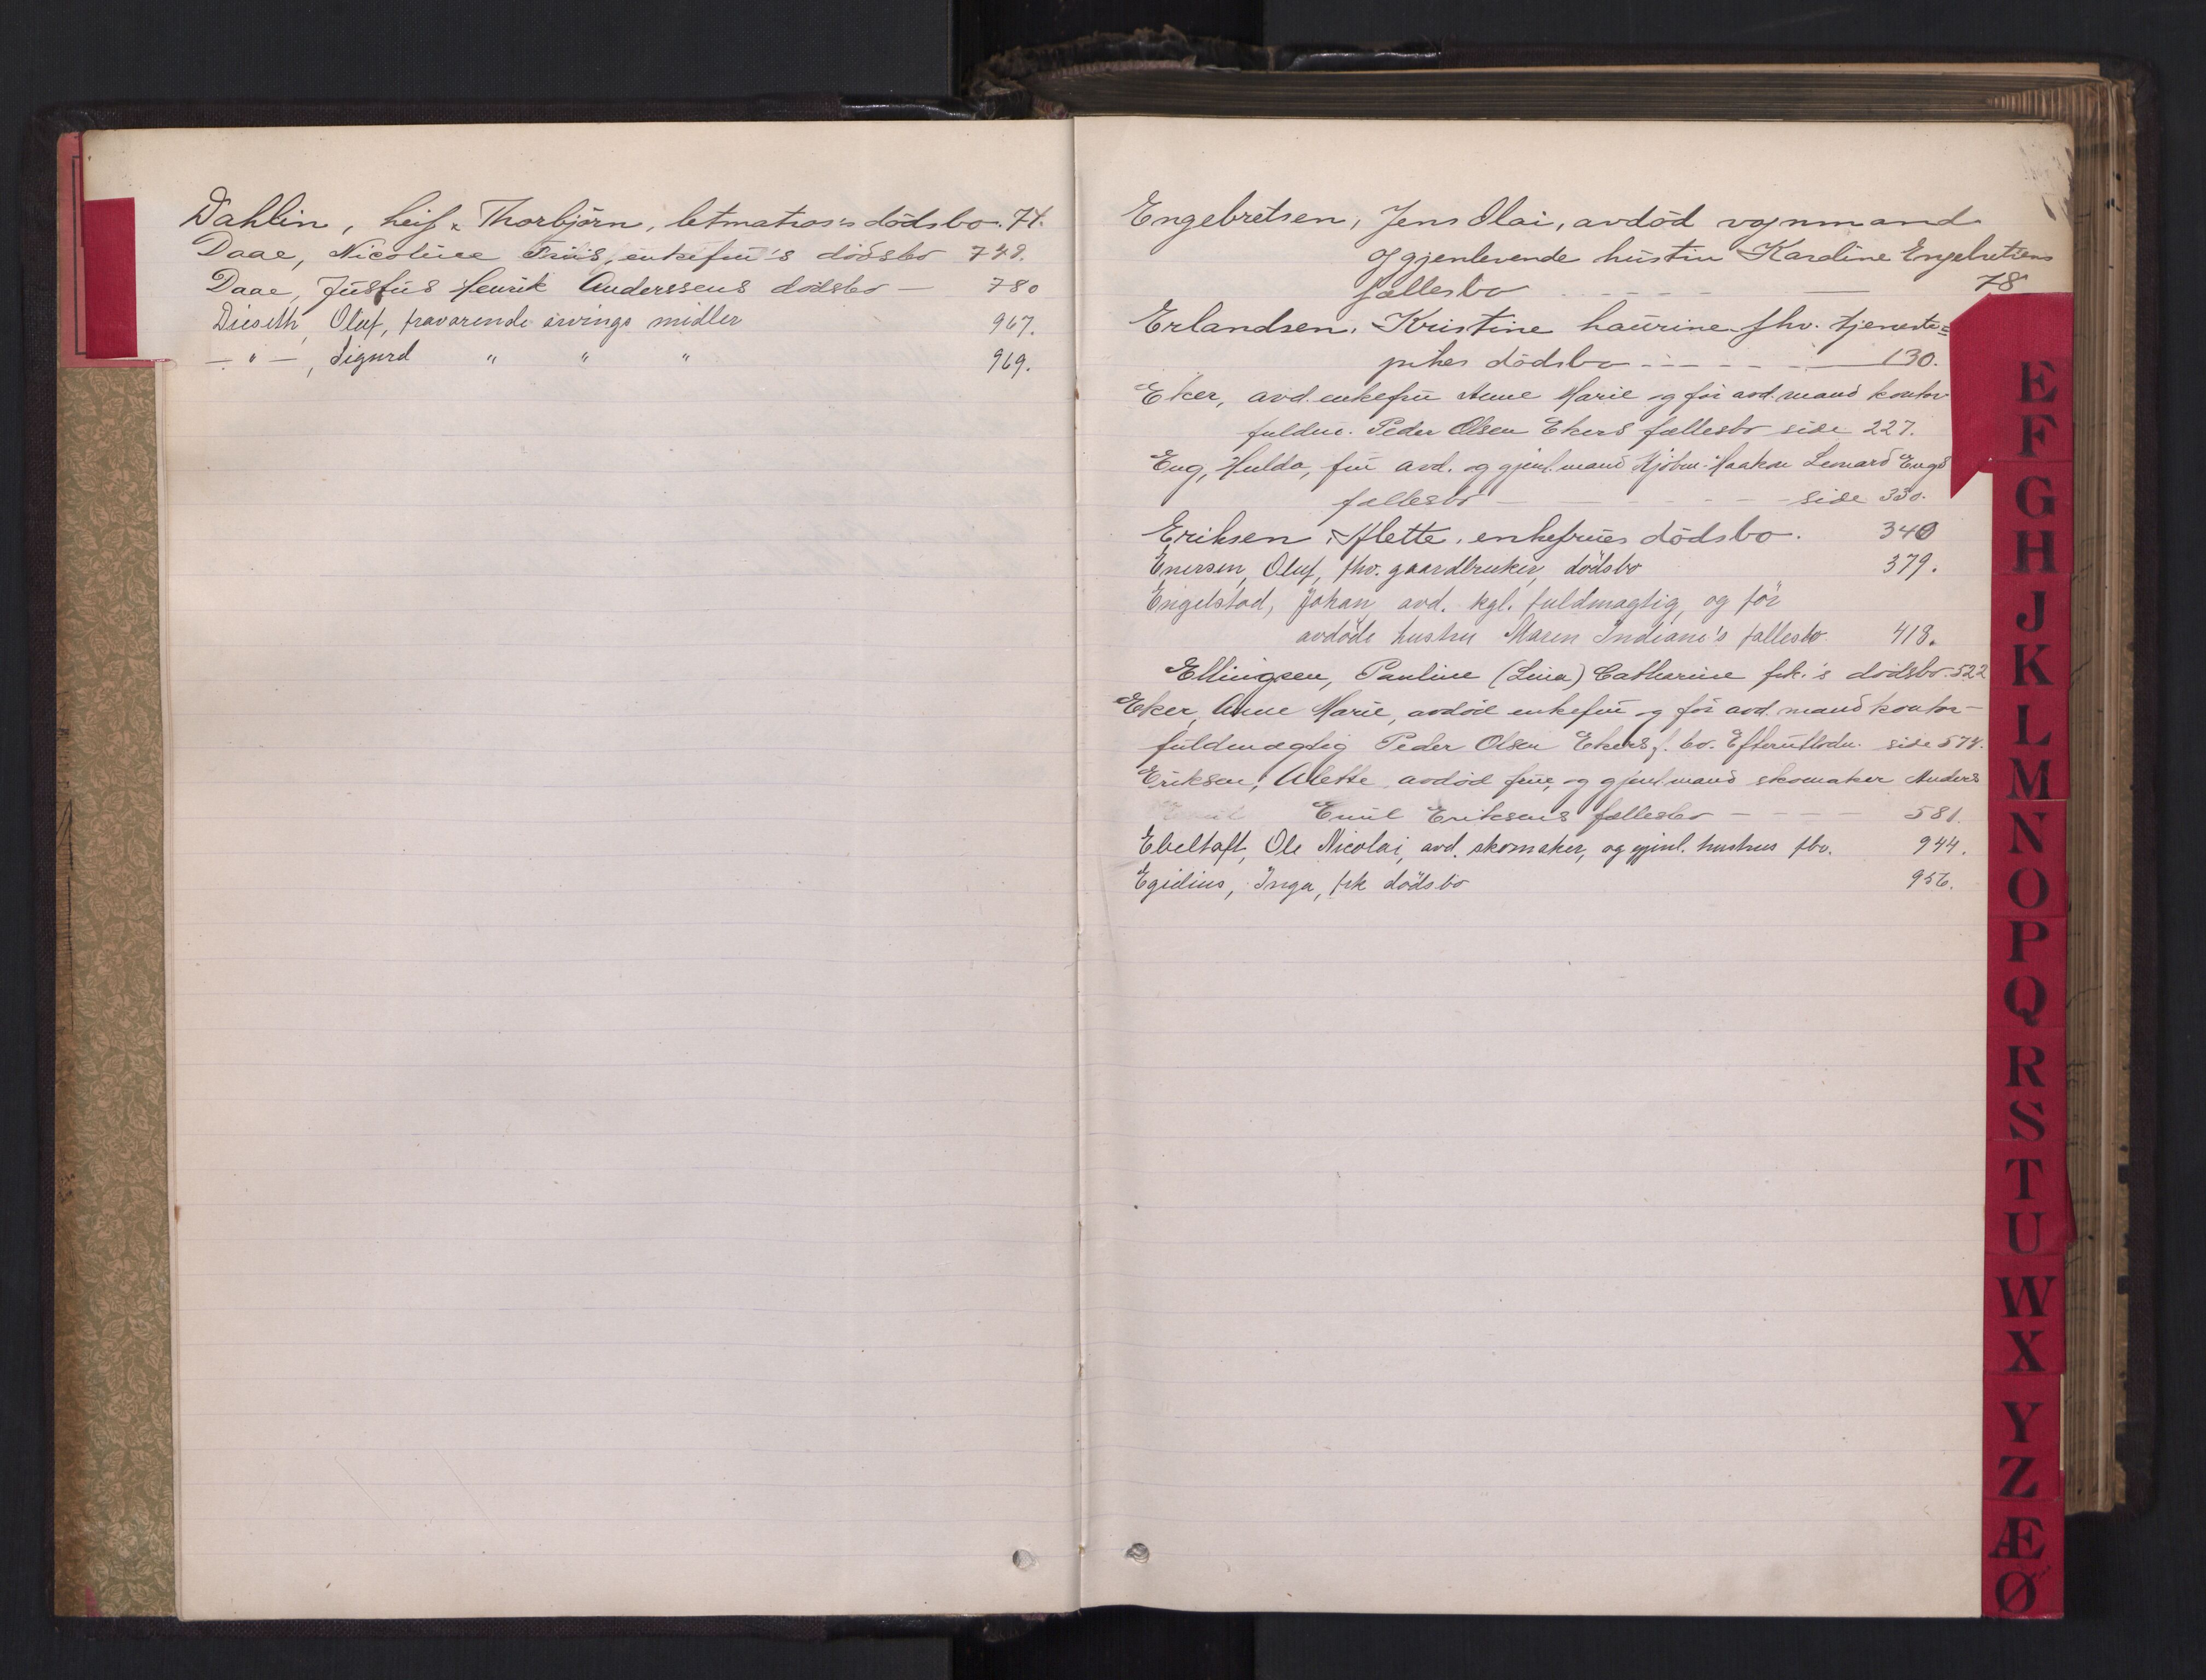 Dahlin, Leif Thorbjörn, letmatros's dödsbo. 74.
Daae, Nicoline Friis, enkefru's dödsbo 748.
Daae, Justus Henrik Anderssens dödsbo — 780
Dieseth, Oluf, fraværende arvings midler 967.
— " —, Sigurd " " " 969.
Engebretsen, Jens Olai, avdöd vognmand
og gjenlevende hustru Karoline Engebretsens
fællesbo 78
Erlandsen, Kristine Laurine fhv. tjeneste=
pikes dödsbo 130.
Eker, avd. enkefru Anne Marie og för avd. mand kontor
fuldm. Peder Olsen Ekers fællesbo side 227.
Eng, Hulda, fru avd. og gjenl. mand Kjöbm. Haakon Leonard Engs
fællesbo side 330.
Eriksen Alette, enkefrues dödsbo. 340
Enersen, Oluf, fhv. gaardbruker, dödsbo 379.
Engelstad, Johan, avd. kgl. fuldmægtig, og för
avdöde hustru Maren Indiane's fællesbo 418.
Ellingsen, Pauline (Lina) Catharine frk.'s dödsbo 522
Eker, Anne Marie, avdöd enkefru og för avd. mand kontor-
fuldmægtig Peder Olsen Ekers f. bo. Efterutlodn. side 574.
Eriksen, Alette avdöd frue, og gjenl. mand skomaker Anders
Emil Eriksens fællesbo 581.
Ebeltoft, Ole Nicolai, avd. skomaker, og gjenl. hustrus fbo. 944.
Egidius, Inga, frk dödsbo 956.
E
F
G
H
J
K
L
M
N
O
P
Q
R
S
T
U
W
X
Y
Z
Æ
Ø